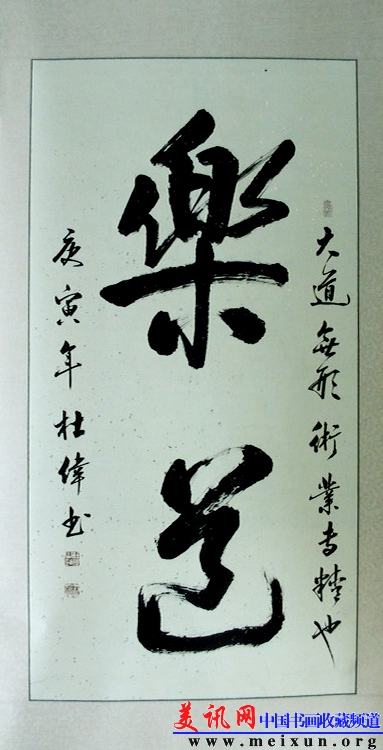 大道無形術業専精也
樂道
庚寅年杜偉书
美讯网中国书画收藏频道
www.meixun.org